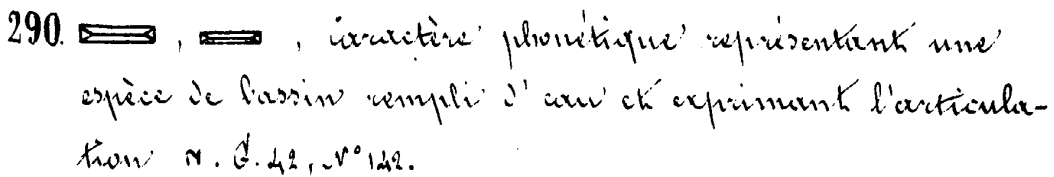 290. , , caractère phonétique représentant une
espèce de bassin rempli d'eau et exprimant l'articula-
tion N. G. 42, N° 142.